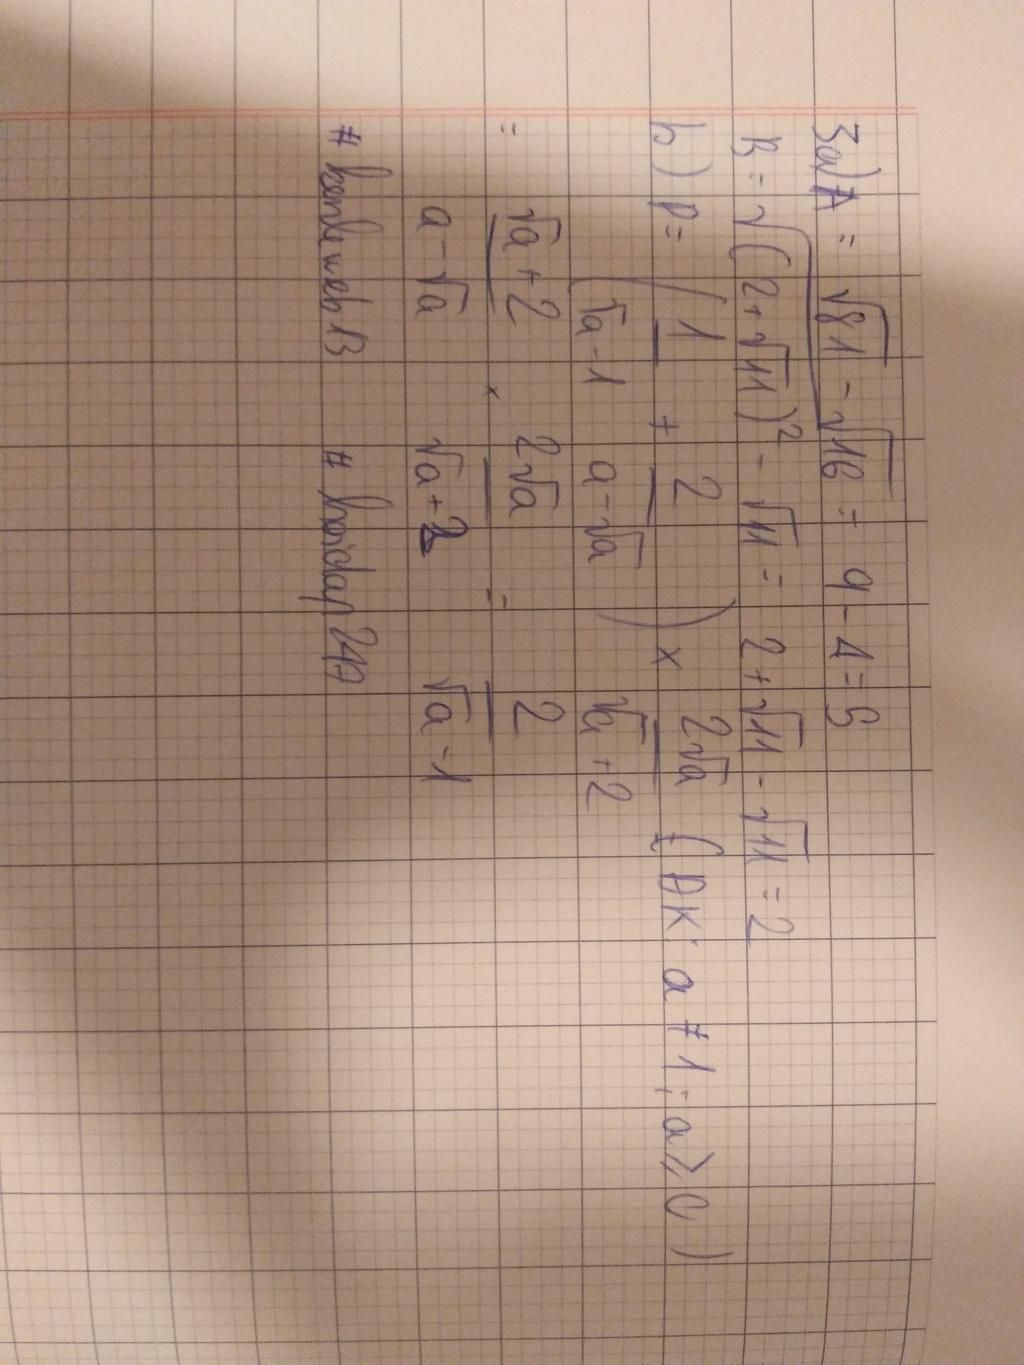 3a) A = √81 - √16 = 9 - 4 = 5
B = √(2+√11)² - √11 = 2+√11 - √11 = 2
b) P = (1/(√a-1) + 2/(a-√a)) × 2√a/(√a+2) (ĐK: a ≠ 1; a ≥ 0)
= (√a+2)/(a-√a) × 2√a/(√a+2) = 2/(√a-1)
# banlinh13 # hoidap247